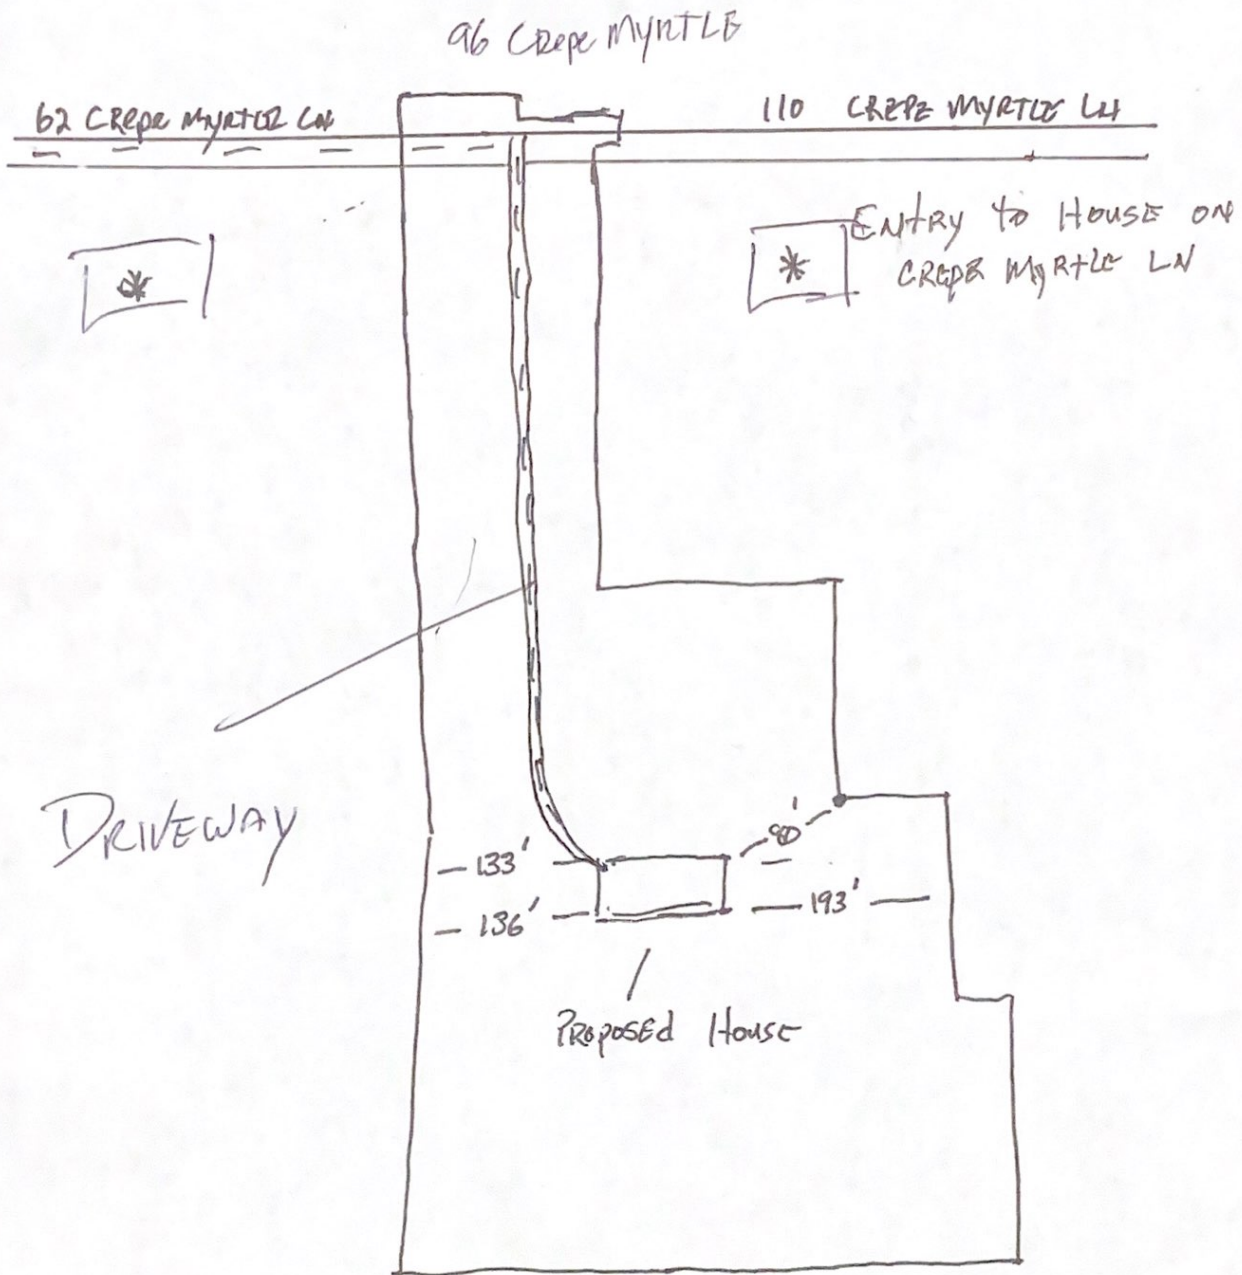 96 Crepe MYRTLE
62 CRepe MYRTLE LN
110 CREPE MYRTLE LN
Entry to House on
CREPE MyRtLE LN
DRIVEWAY
133'
90'
136'
193'
PRoposEd House